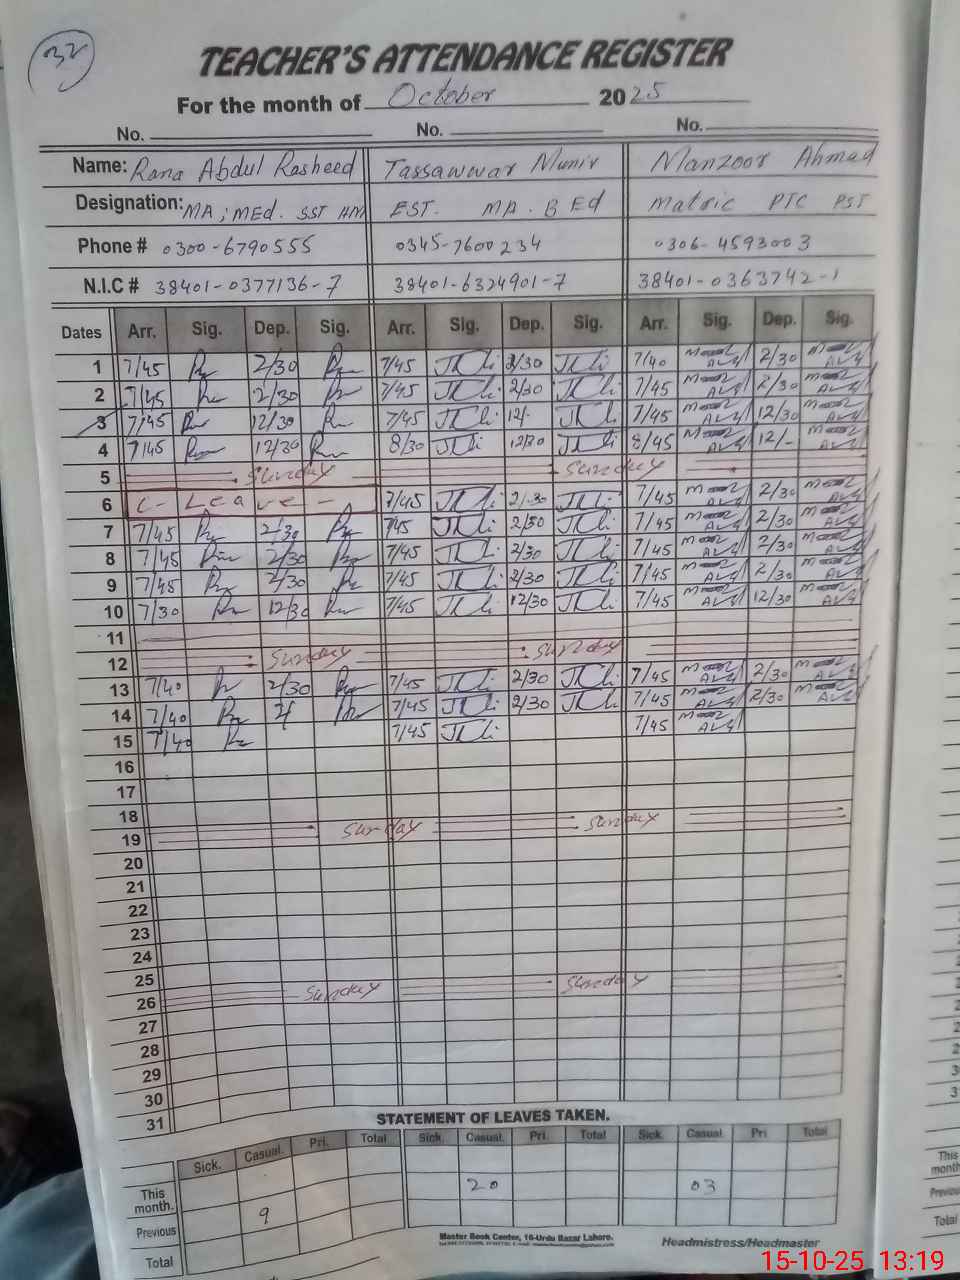 32
TEACHER'S ATTENDANCE REGISTER
For the month of October 2025
No. No. No.
Name: Rana Abdul Rasheed Tassawwar Munir Manzoor Ahmad
Designation: MA; MEd. SST HM EST. MA. B Ed Matric PTC PST
Phone # 0300-6790555 0345-7600234 0306-4593003
N.I.C # 38401-0377136-7 38401-6324901-7 38401-0363742-1
Dates Arr. Sig. Dep. Sig. Arr. Sig. Dep. Sig. Arr. Sig. Dep. Sig.
1 7/45 2/30 7/45 2/30 7/40 2/30
2 7/45 2/30 7/45 2/30 7/45 2/30
3 7/45 12/30 7/45 12/- 7/45 12/30
4 7/45 12/30 8/30 12/30 8/45 12/-
5 Sunday Sunday
6 C- Leave - 7/45 2/30 7/45 2/30
7 7/45 2/30 7/45 2/30 7/45 2/30
8 7/45 2/30 7/45 2/30 7/45 2/30
9 7/45 2/30 7/45 2/30 7/45 2/30
10 7/30 12/30 7/45 12/30 7/45 12/30
11
12 Sunday Sunday
13 7/40 2/30 7/45 2/30 7/45 2/30
14 7/40 7/45 2/30 7/45 2/30
15 7/40 7/45 7/45
16
17
18
19 Sunday Sunday
20
21
22
23
24
25
26 Sunday Sunday
27
28
29
30
31
STATEMENT OF LEAVES TAKEN.
Sick. Casual. Pri. Total Sick. Casual. Pri. Total Sick. Casual. Pri Total
This month. 20 03
Previous 9
Total
Master Book Center, 16-Urdu Bazar Lahore.
Headmistress/Headmaster
This month
Previous
Total
15-10-25 13:19